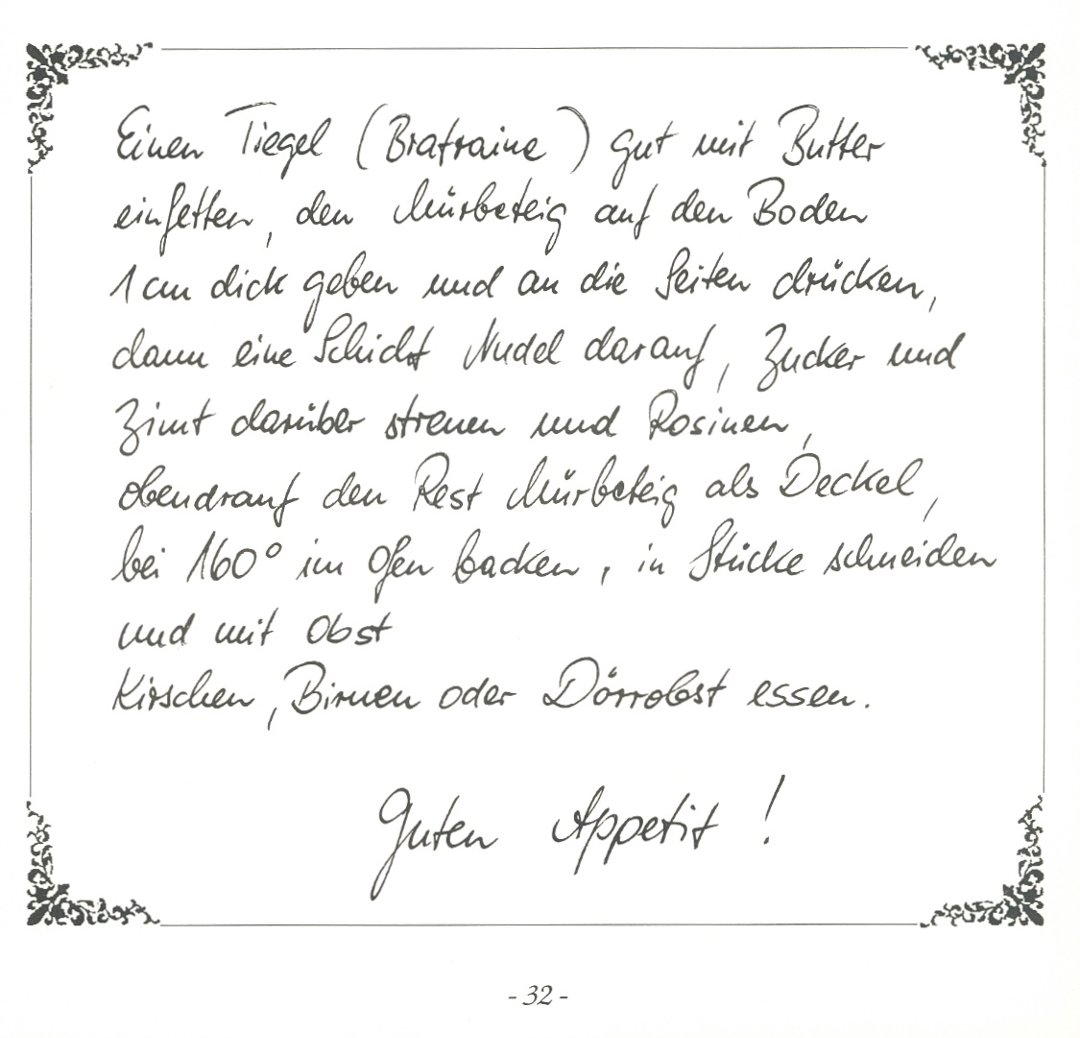 Einen Tiegel (Bratraine) gut mit Butter
einfetten, den Mürbeteig auf den Boden
1 cm dick geben und an die Seiten drücken,
dann eine Schicht Nudel darauf, Zucker und
Zimt darüber streuen und Rosinen,
obendrauf den Rest Mürbeteig als Deckel,
bei 160° im Ofen backen, in Stücke schneiden
und mit Obst
Kirschen, Birnen oder Dörrobst essen.
Guten Appetit!
- 32 -